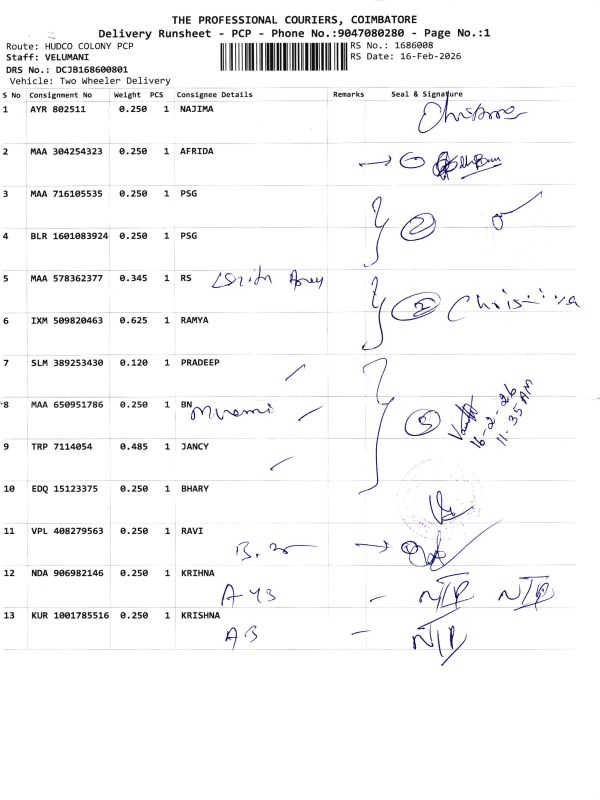 THE PROFESSIONAL COURIERS, COIMBATORE
Delivery Runsheet - PCP - Phone No.:9047080280 - Page No.:1
Route: HUDCO COLONY PCP
RS No.: 1686008
Staff: VELUMANI
RS Date: 16-Feb-2026
DRS No.: DCJB168600801
Vehicle: Two Wheeler Delivery
S No Consignment No Weight PCS Consignee Details Remarks Seal & Signature
1 AYR 802511 0.250 1 NAJIMA
2 MAA 304254323 0.250 1 AFRIDA
3 MAA 716105535 0.250 1 PSG
2
4 BLR 1601083924 0.250 1 PSG
5 MAA 578362377 0.345 1 RS
2
6 IXM 509820463 0.625 1 RAMYA
7 SLM 389253430 0.120 1 PRADEEP
*8 MAA 650951786 0.250 1 BN
5
16-2-26
11-35 AM
9 TRP 7114054 0.485 1 JANCY
10 EDQ 15123375 0.250 1 BHARY
11 VPL 408279563 0.250 1 RAVI
12 NDA 906982146 0.250 1 KRIHNA
N/P N/P
13 KUR 1001785516 0.250 1 KRISHNA
N/P